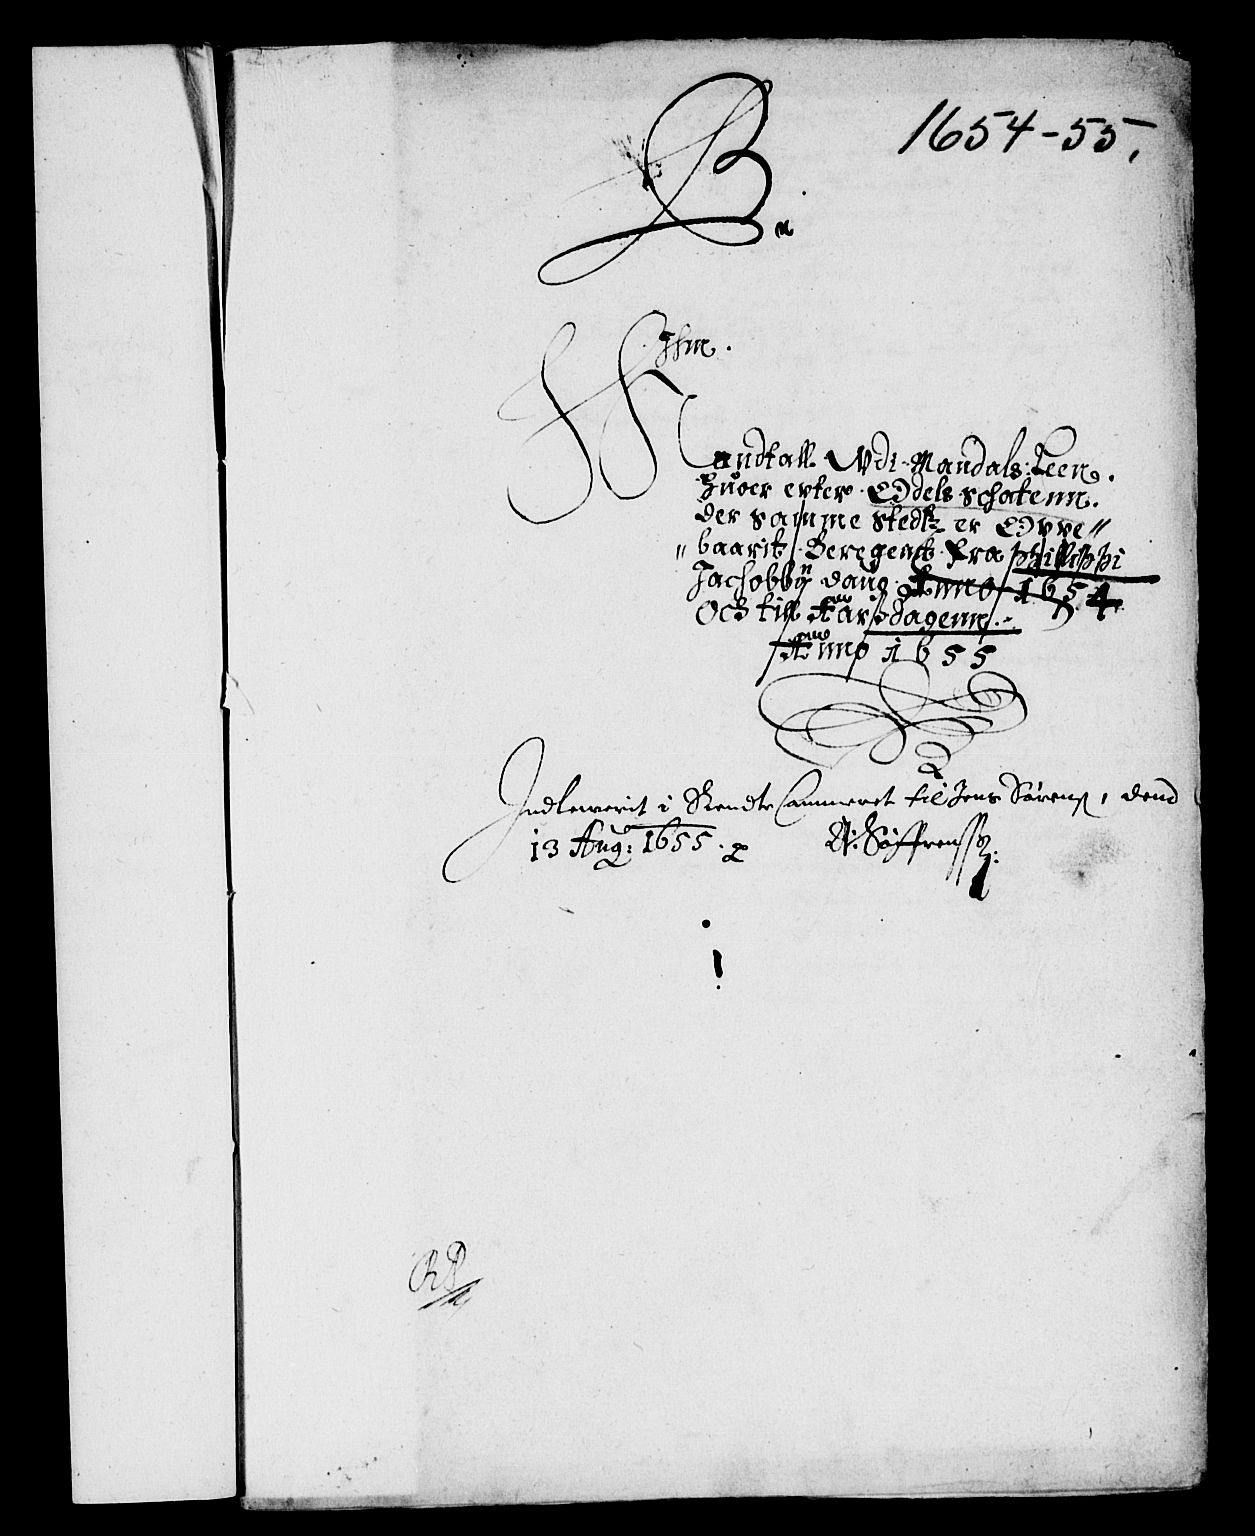 1654-55,
B
Jhm.
Mandtall Wdi Mandals Leen.
huoer epter Oddelsschatenn.
der samme stedtz er Oppe"
" baarit, Beregenet fra Philippi
Jachobbij daug Anno 1654
Och till Aarsdagenn.
Anno 1655
Indleuerit i Rendte Cammeret til Jens Sørenß, dend
13 Aug: 1655.
Søffrenssøn: